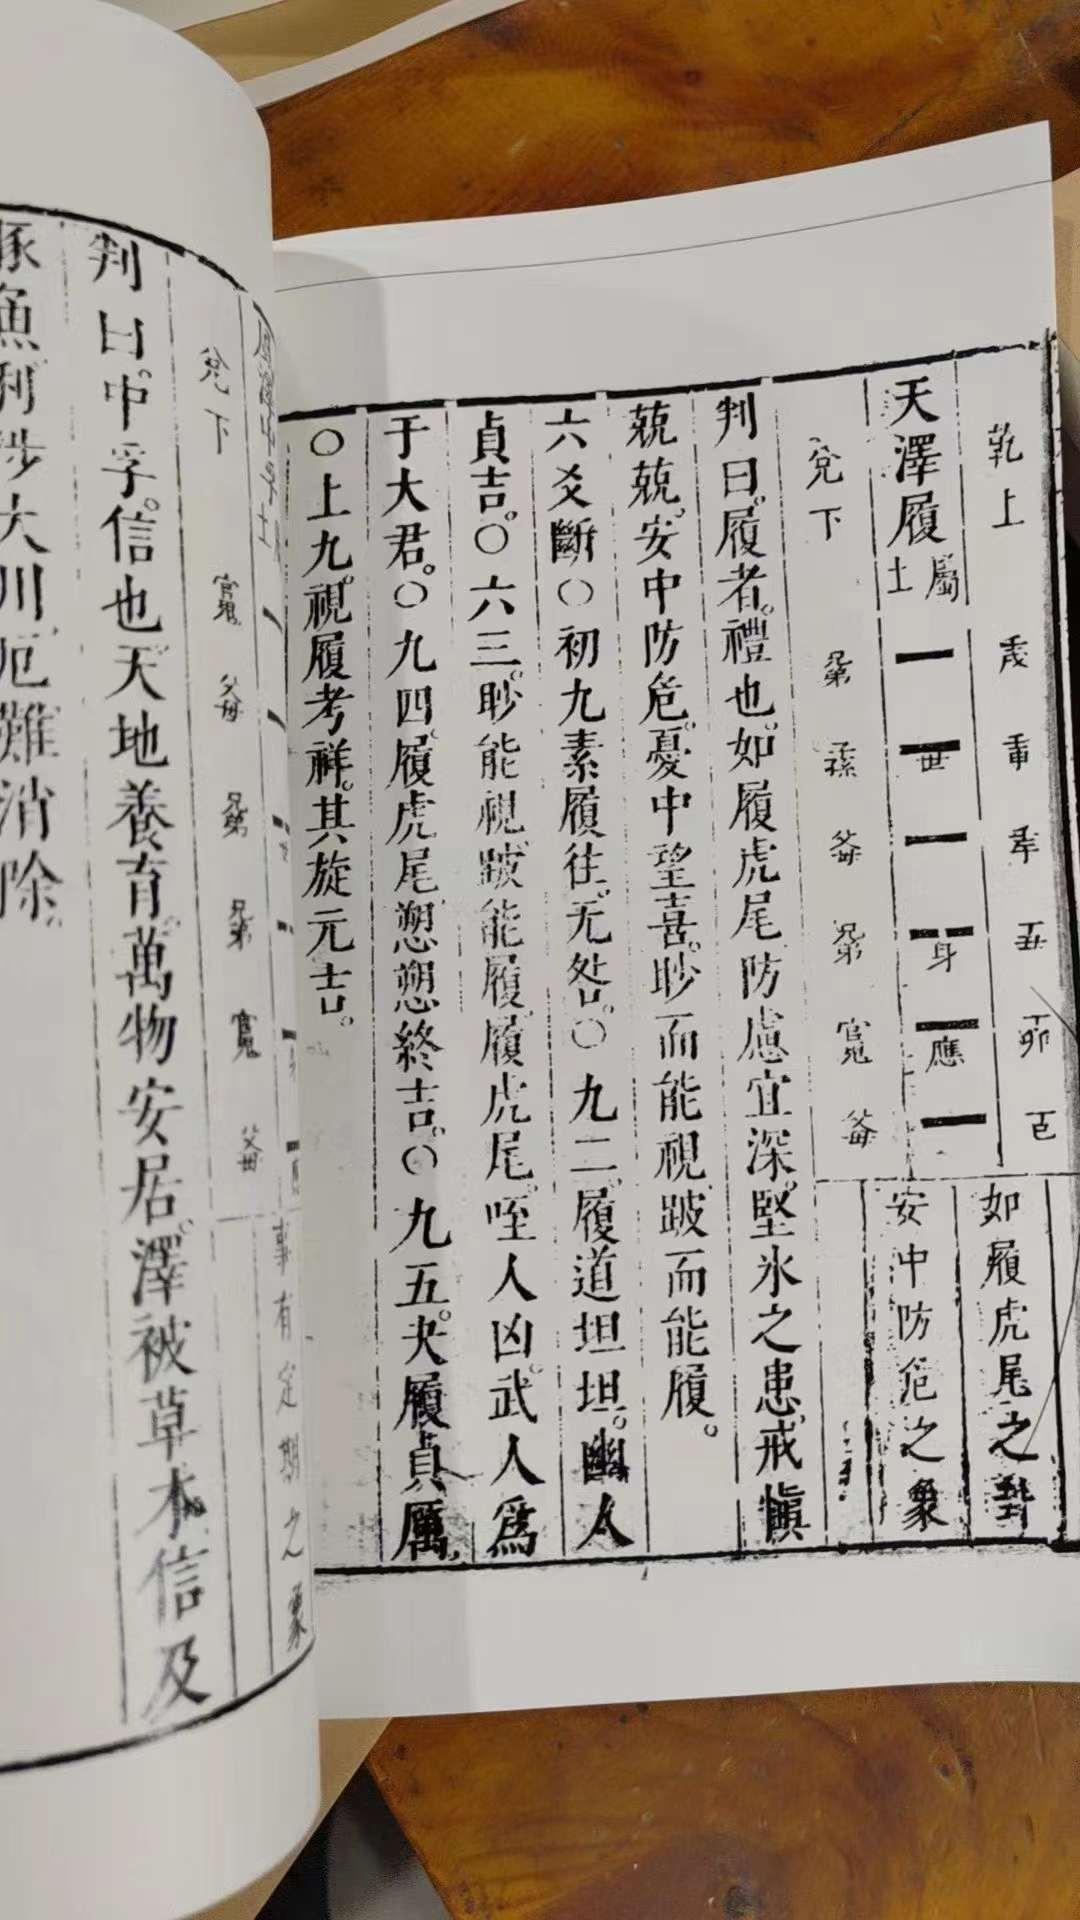 乾上
如履虎尾之
天澤履屬土
世
身
應
安中防危之象
兌下
兄弟
官鬼
父母
判曰。履者。禮也。如履虎尾。防慮宜深。堅氷之患。戒愼
兢兢。安中防危。憂中望喜。眇而能視。跛而能履。
六爻斷〇初九素履往。无咎。〇九二。履道坦坦。幽人
貞吉。〇六三。眇能視。跛能履。履虎尾。咥人凶。武人爲
于大君。〇九四。履虎尾愬愬終吉。〇九五。夬履貞厲。
〇上九。視履考祥。其旋元吉。
事有定期之象
兌下
官鬼
父母
兄弟
兄弟
官鬼
父母
判曰。中孚。信也。天地養育。萬物安居。澤被草木。信及
豚魚。利涉大川。厄難消除。